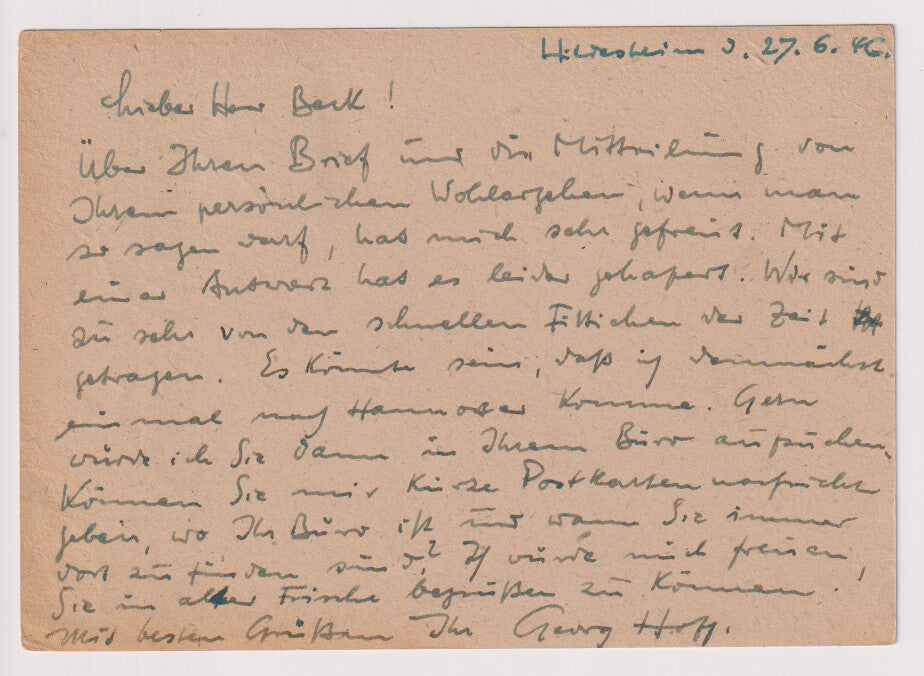 Hildesheim d. 27. 6. 46.
Lieber Herr Beck!
Über Ihren Brief und die Mitteilung von
Ihrem persönlichen Wohlergehen, wenn man
so sagen darf, hat mich sehr gefreut. Mit
einer Antwort hat es leider gehapert. Wir sind
zu sehr von den schnellen Fittichen der Zeit
getragen. Es könnte sein, daß ich demnächst
einmal nach Hannover komme. Gern
würde ich Sie dann in Ihrem Büro aufsuchen.
Können Sie mir kurze Postkartennachricht
geben, wo Ihr Büro ist und wann Sie immer
dort zu finden sind? Ich würde mich freuen,
Sie in alter Frische begrüßen zu können!
Mit besten Grüßen Ihr Georg Hoff.